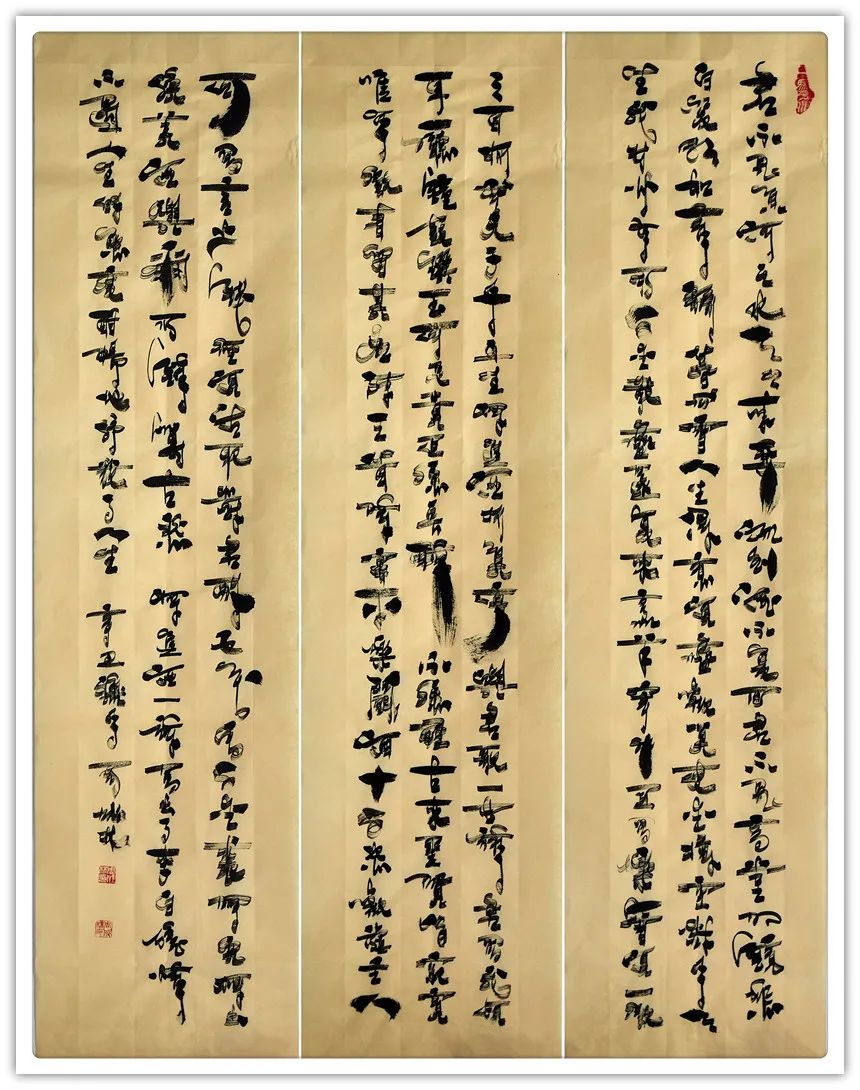 君不見黃河之水天上來奔流到海不復回君不見高堂明鏡悲
白髮朝如青絲暮成雪人生得意須盡歡莫使金樽空對月天
生我材必有用千金散盡還復來烹羊宰牛且爲樂會須一飲
三百杯岑夫子丹丘生將進酒杯莫停與君歌一曲君爲我傾
耳聽鐘鼓饌玉何足貴但願長醉不願醒古來聖賢皆寂寞
惟有飲者留其名陳王昔時宴平樂斗酒十千恣歡謔主人
何爲言少錢徑須沽取對君酌五花馬千金裘呼兒將出
換美酒與爾同銷萬古愁 將進酒一詩寫出了李白懷才
不遇人生 了人生 辛丑